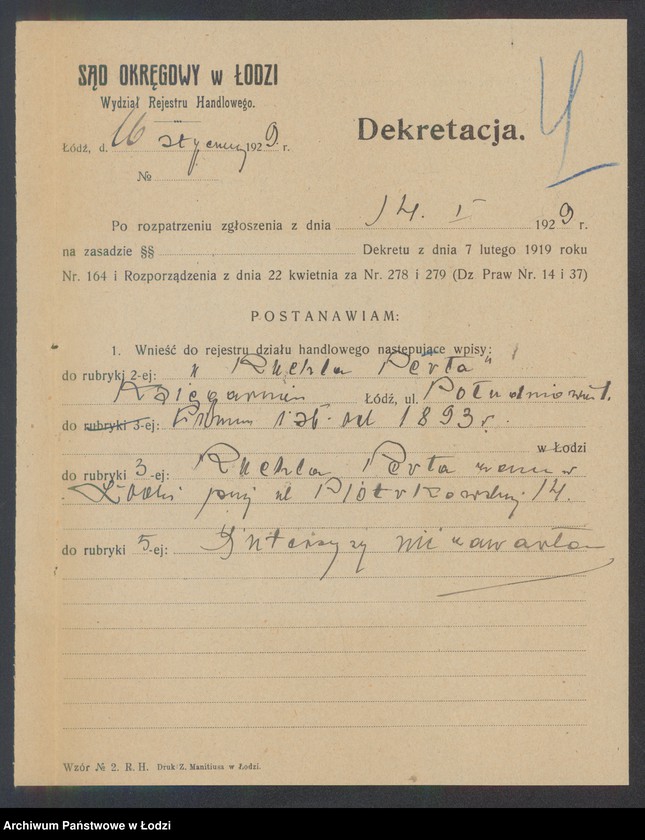 SĄD OKRĘGOWY w ŁODZI
Wydział Rejestru Handlowego.
Łódź, d. 16 stycznia 1929. r.
Dekretacja.
№
Po rozpatrzeniu zgłoszenia z dnia 14. I 1929 r.
na zasadzie §§ Dekretu z dnia 7 lutego 1919 roku
Nr. 164 i Rozporządzenia z dnia 22 kwietnia za Nr. 278 i 279 (Dz Praw Nr. 14 i 37)
POSTANAWIAM:
1. Wnieść do rejestru działu handlowego następujące wpisy:
do rubryki 2-ej: „Ruchla Perła"
Księgarnia Łódź, ul. Południowa 1.
do rubryki 3-ej: Firma istn. od 1893 r.
w Łodzi
do rubryki 3-ej: Ruchla Perła zam. w
Łodzi przy ul Piotrkowskiej 14.
do rubryki 5-ej: Intercyzy nie zawarła
Wzór № 2. R. H. Druk Z. Manitiusa w Łodzi.
Archiwum Państwowe w Łodzi